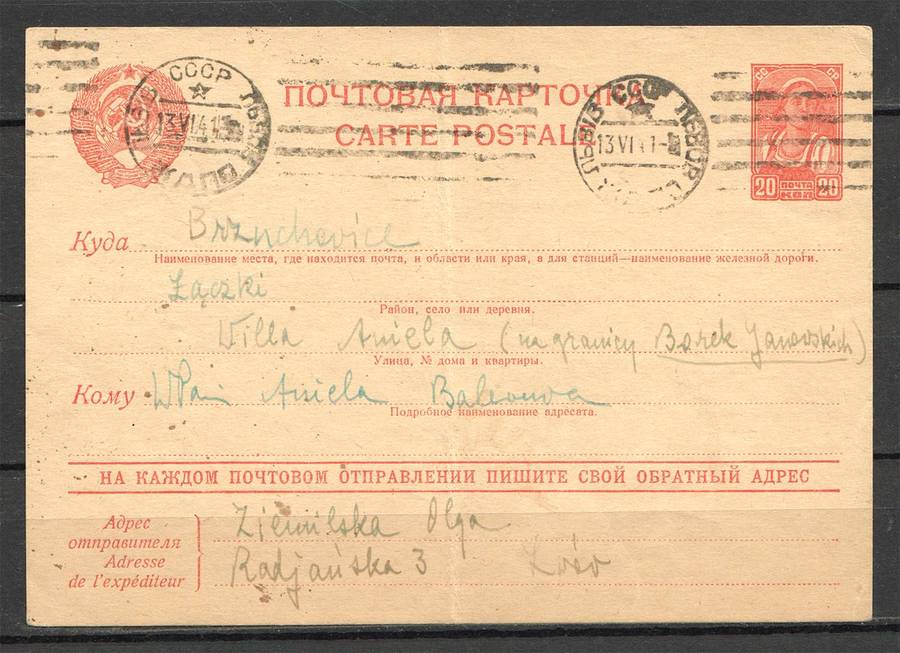 СССР
13 VI 41
ПОЧТОВАЯ КАРТОЧКА
CARTE POSTALE
13 VI 41
СС СР
20 ПОЧТА 20
КОП
Куда Brzuchovice
Наименование места, где находится почта, и области или края, а для станций—наименование железной дороги.
Łączki
Район, село или деревня.
Willa Aniela (na granicy Borek Janowskich)
Улица, № дома и квартиры.
Кому WPani Aniela
Подробное наименование адресата.
НА КАЖДОМ ПОЧТОВОМ ОТПРАВЛЕНИИ ПИШИТЕ СВОЙ ОБРАТНЫЙ АДРЕС
Адрес
отправителя
Adresse
de l'expéditeur
Ziemilska Olga
Radjańska 3 Lvov